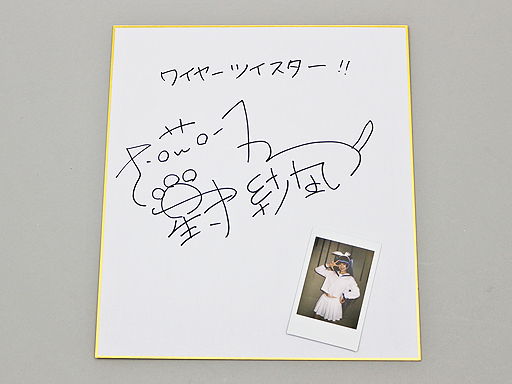 ワイヤーツイスター!!
星守紗凪